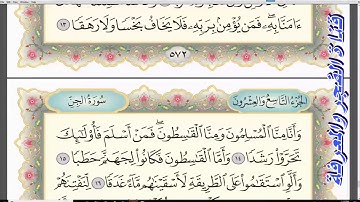 ءَامَنَّا بِهِۦ ۖ فَمَن يُؤْمِنۢ بِرَبِّهِۦ فَلَا يَخَافُ بَخْسًا وَلَا رَهَقًا ١٣
٥٧٢
الجُزْءُ التَّاسِعُ وَالعِشْرُونَ
سُورَةُ الجِنِّ
وَأَنَّا مِنَّا ٱلْمُسْلِمُونَ وَمِنَّا ٱلْقَٰسِطُونَ ۖ فَمَنْ أَسْلَمَ فَأُو۟لَٰٓئِكَ
تَحَرَّوْا۟ رَشَدًا ١٤ وَأَمَّا ٱلْقَٰسِطُونَ فَكَانُوا۟ لِجَهَنَّمَ حَطَبًا ١٥
وَأَلَّوِ ٱسْتَقَٰمُوا۟ عَلَى ٱلطَّرِيقَةِ لَأَسْقَيْنَٰهُم مَّآءً غَدَقًا ١٦ لِّنَفْتِنَهُمْ
قناة الفجر والمعرفة